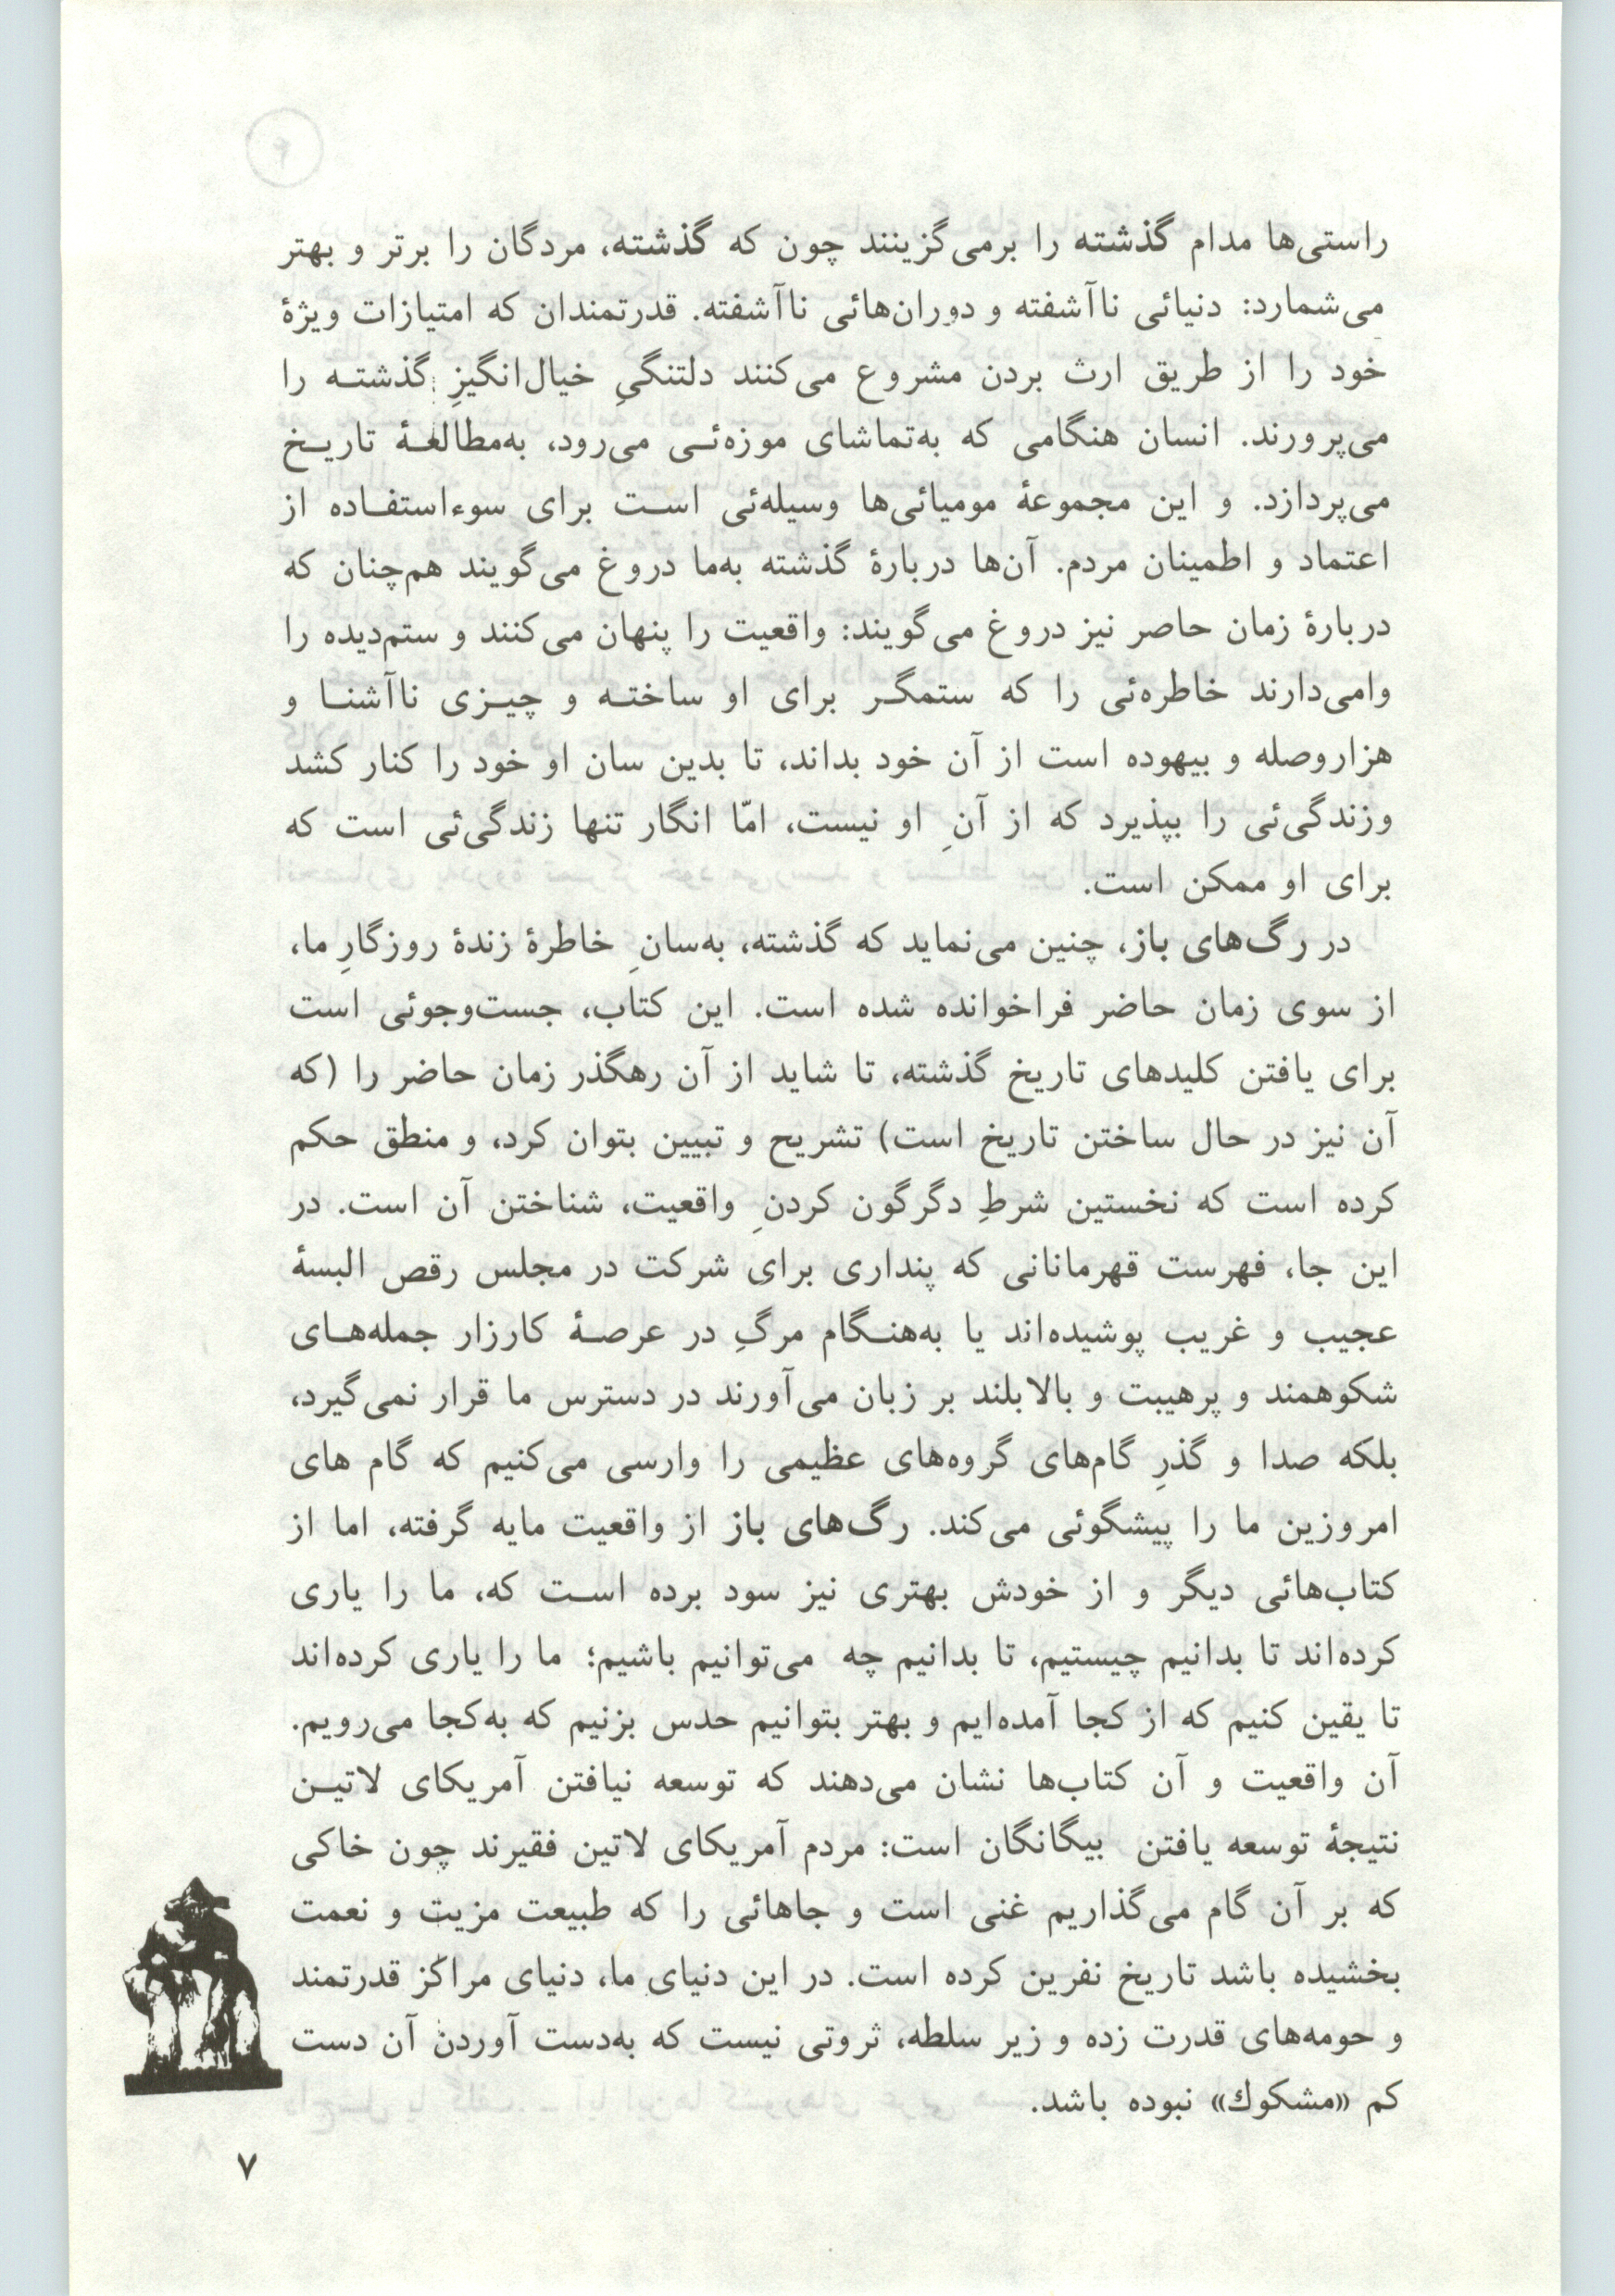 راستی‌ها مدام گذشته را برمی‌گزینند چون که گذشته، مردگان را برتر و بهتر
می‌شمارد: دنیائی ناآشفته و دوران‌هائی ناآشفته. قدرتمندان که امتیازات ویژهٔ
خود را از طریق ارث بردن مشروع می‌کنند دلتنگیِ خیال‌انگیزِ گذشتـه را
می‌پرورند. انسان هنگامی که به‌تماشای موزه‌ئـی می‌رود، به‌مطالعـهٔ تاریـخ
می‌پردازد. و این مجموعهٔ مومیائی‌ها وسیله‌ئی اسـت برای سوءاستفـاده از
اعتماد و اطمینان مردم. آن‌ها دربارهٔ گذشته به‌ما دروغ می‌گویند هم‌چنان که
دربارهٔ زمان حاصر نیز دروغ می‌گویند: واقعیت را پنهان می‌کنند و ستم‌دیده را
وامی‌دارند خاطره‌ئی را که ستمگـر برای او ساختـه و چیـزی ناآشنـا و
هزاروصله و بیهوده است از آن خود بداند، تا بدین سان او خود را کنار کشد
وزندگی‌ئی را بپذیرد که از آنِ او نیست، امّا انگار تنها زندگی‌ئی است که
برای او ممکن است.
در رگ‌های باز، چنین می‌نماید که گذشته، به‌سانِ خاطرهٔ زندهٔ روزگارِ ما،
از سوی زمان حاضر فراخوانده شده است. این کتاب، جست‌وجوئی است
برای یافتن کلیدهای تاریخ گذشته، تا شاید از آن رهگذر زمان حاضر را (که
آن نیز در حال ساختن تاریخ است) تشریح و تبیین بتوان کرد، و منطق حکم
کرده است که نخستین شرطِ دگرگون کردنِ واقعیت، شناختن آن است. در
این جا، فهرست قهرمانانی که پنداری برای شرکت در مجلس رقص البسهٔ
عجیب و غریب پوشیده‌اند یا به‌هنـگام مرگِ در عرصـهٔ کارزار جمله‌هـای
شکوهمند و پرهیبت و بالابلند بر زبان می‌آورند در دسترس ما قرار نمی‌گیرد،
بلکه صدا و گذرِ گام‌های گروه‌های عظیمی را وارسی می‌کنیم که گام های
امروزین ما را پیشگوئی می‌کند. رگ‌های باز از واقعیت مایه گرفته، اما از
کتاب‌هائی دیگر و از خودش بهتری نیز سود برده اسـت که، ما را یاری
کرده‌اند تا بدانیم چیستیم، تا بدانیم چه می‌توانیم باشیم؛ ما را یاری کرده‌اند
تا یقین کنیم که از کجا آمده‌ایم و بهتر بتوانیم حدس بزنیم که به‌کجا می‌رویم.
آن واقعیت و آن کتاب‌ها نشان می‌دهند که توسعه نیافتن آمریکای لاتیـن
نتیجهٔ توسعه یافتن بیگانگان است: مردم آمریکای لاتین فقیرند چون خاکی
که بر آن گام می‌گذاریم غنی است و جاهائی را که طبیعت مزیت و نعمت
بخشیده باشد تاریخ نفرین کرده است. در این دنیای ما، دنیای مراکز قدرتمند
و حومه‌های قدرت زده و زیر سلطه، ثروتی نیست که به‌دست آوردن آن دست
کم «مشکوك» نبوده باشد.
۷